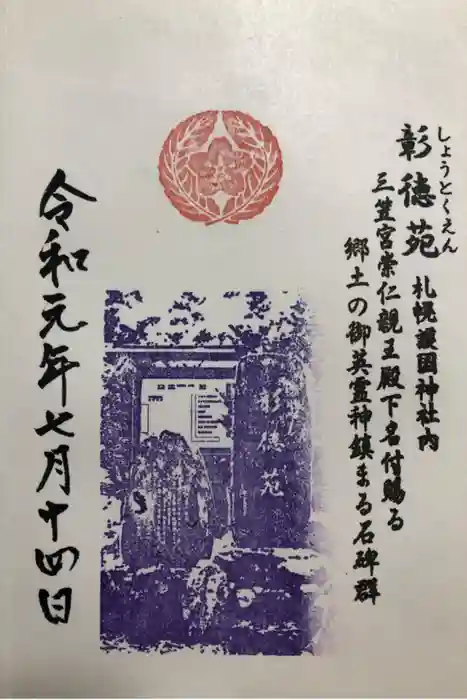 しょうとくえん
彰徳苑 札幌護国神社内
三笠宮崇仁親王殿下名付賜る
郷土の御英霊神鎮まる石碑群
彰徳苑
令和元年七月十四日